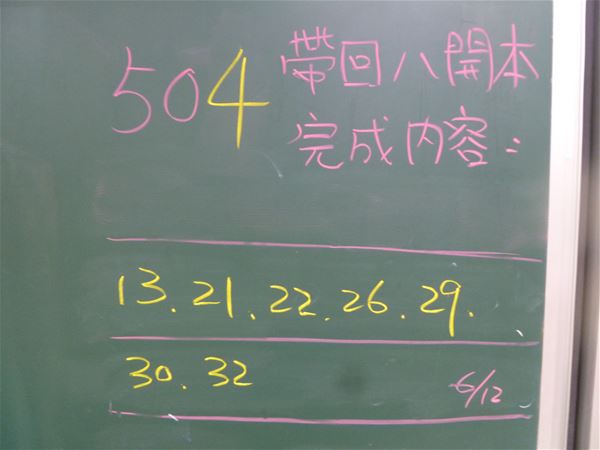 504 帶回八開本
完成內容：
13.21.22.26.29.
30.32
6/12